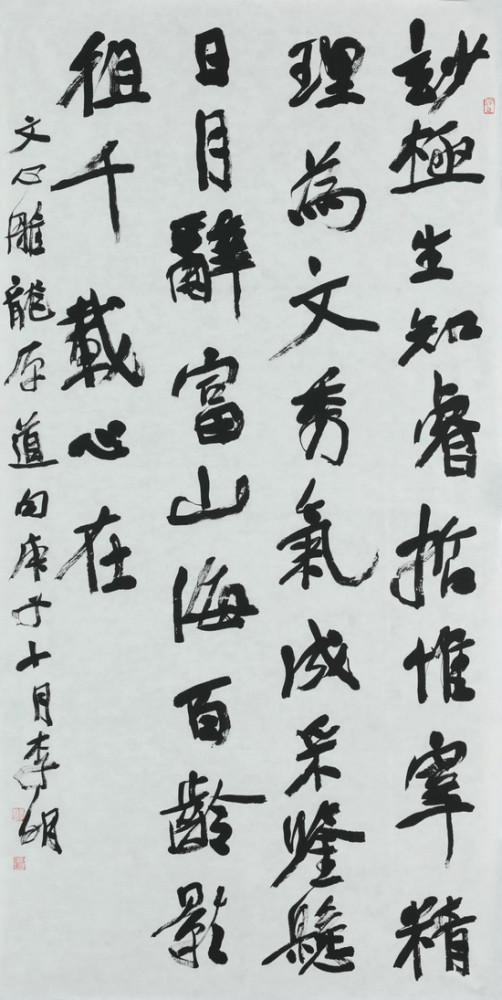 玅極生知睿哲惟宰精
理為文秀氣成采鑒懸
日月辭富山海百齡影
徂千載心在
文心雕龍原道句庚子十月李明